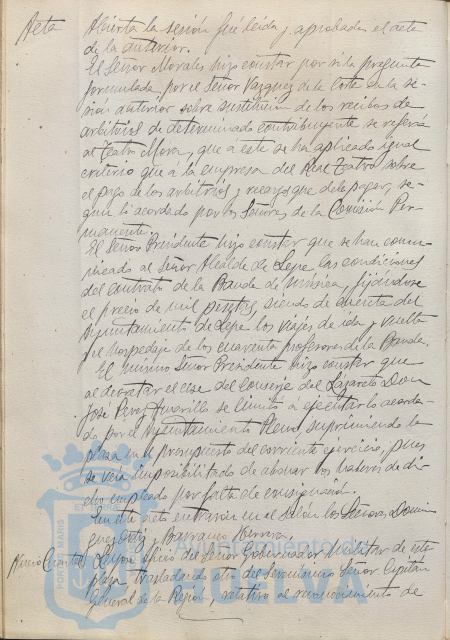 Acta
Abierta la sesión fué leida y aprobada el acta
de la anterior.
El Señor Morales hizo constar por si la pregunta
formulada por el Señor Vazquez de la Corte en la se-
sión anterior sobre sustitución de los recibos de
arbitrios de determinado contribuyente se referia
al Teatro Mora, que á este se ha aplicado igual
criterio que á la empresa del Real Teatro sobre
el pago de los arbitrios y recargos que debe pagar, se-
gun lo acordado por los Señores de la Comisión Per-
manente.
El Señor Presidente hizo constar que se han comu-
nicado al Señor Alcalde de Lepe, las condiciones
del contrato de la Banda de música, fijándose
el precio de mil pesetas siendo de cuenta del
Ayuntamiento de Lepe los viajes de ida y vuelta
y el hospedaje de los cuarenta profesores de la Banda.
El mismo Señor Presidente hizo constar que
al decretar el cese del Conserje del Lazareto Don
José Perez Jaorillo se limitó á ejecutar lo acorda-
do por el Ayuntamiento Pleno suprimiendo la
plaza en el presupuesto del corriente ejercicio, pues
se veia imposibilitado de abonar los haberes de di-
cho empleado por falta de consignación.
En este acto entraron en el salón los Señores Domin-
guez Ortiz y Barranco Herrera.
Nuevo Cuartel
Leyóse oficio del Señor Gobernador Militar de esta
plaza trasladando otro del Excmo Señor Capitan
General de la Región, relativo al reconocimiento de
PORTUS MARIS
Ayuntamiento de
HUELVA